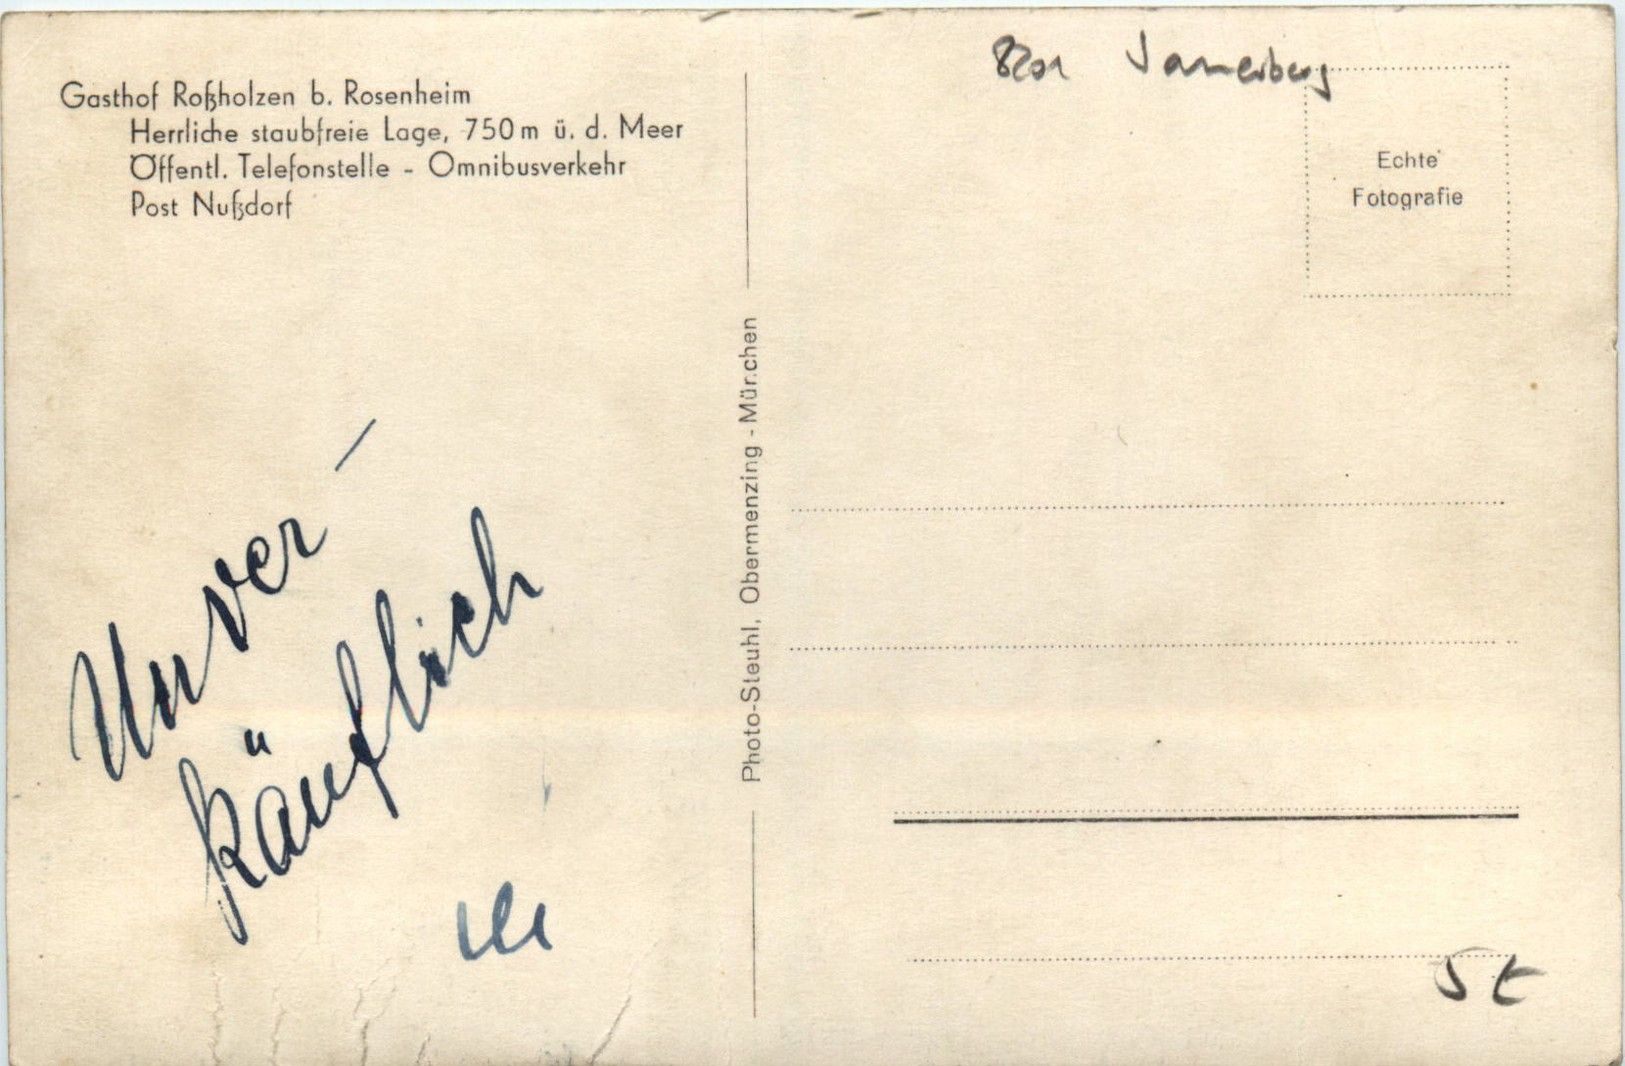 Gasthof Roßholzen b. Rosenheim
Herrliche staubfreie Lage, 750 m ü. d. Meer
Öffentl. Telefonstelle - Omnibusverkehr
Post Nußdorf
Unver-
käuflich
Photo-Steuhl, Obermenzing - München
8201 Samerberg
Echte
Fotografie